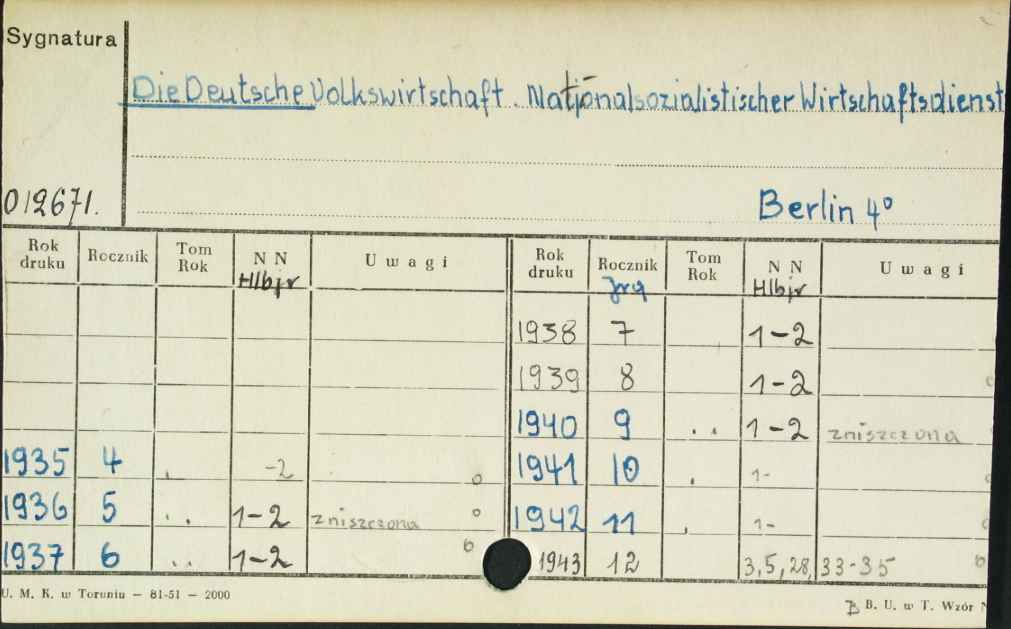 Sygnatura
Die Deutsche Volkswirtschaft. Nationalsozialistischer Wirtschaftsdienst
012671.
Berlin 4°
Rok druku Rocznik Tom Rok N N Hlbjr Uwagi Rok druku Rocznik Jrg Tom Rok N N Hlbjr Uwagi
1938 7 1-2
1939 8 1-2
1940 9 . . 1-2 zniszczona
1935 4 . -2 o 1941 10 . 1-
1936 5 . . 1-2 zniszczona o 1942 11 . 1-
1937 6 . . 1-2 o 1943 12 3,5,28, 33-35
U. M. K. w Toruniu — 81-51 — 2000
B. U. w T. Wzór